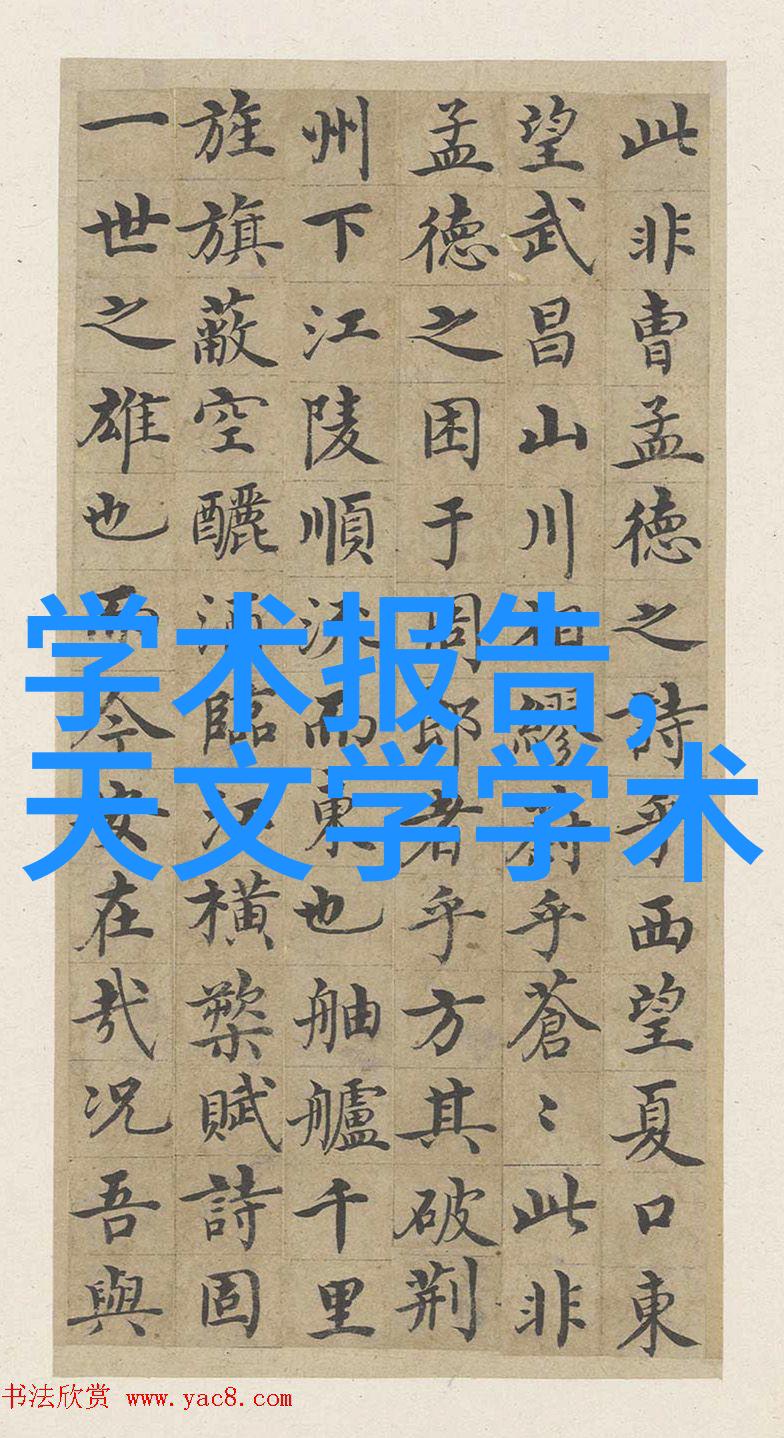 此非曹孟德之詩乎西望夏口東
望武昌山川相繆乎蒼〻此非
孟德之困于周郎者乎方其破荆
州下江陵順流而東也舳艫千里
旌旗蔽空釃酒臨江橫槊賦詩固
一世之雄也而今安在哉况吾與
学术报告,
天文学学术
书法欣赏 www.yac8.com